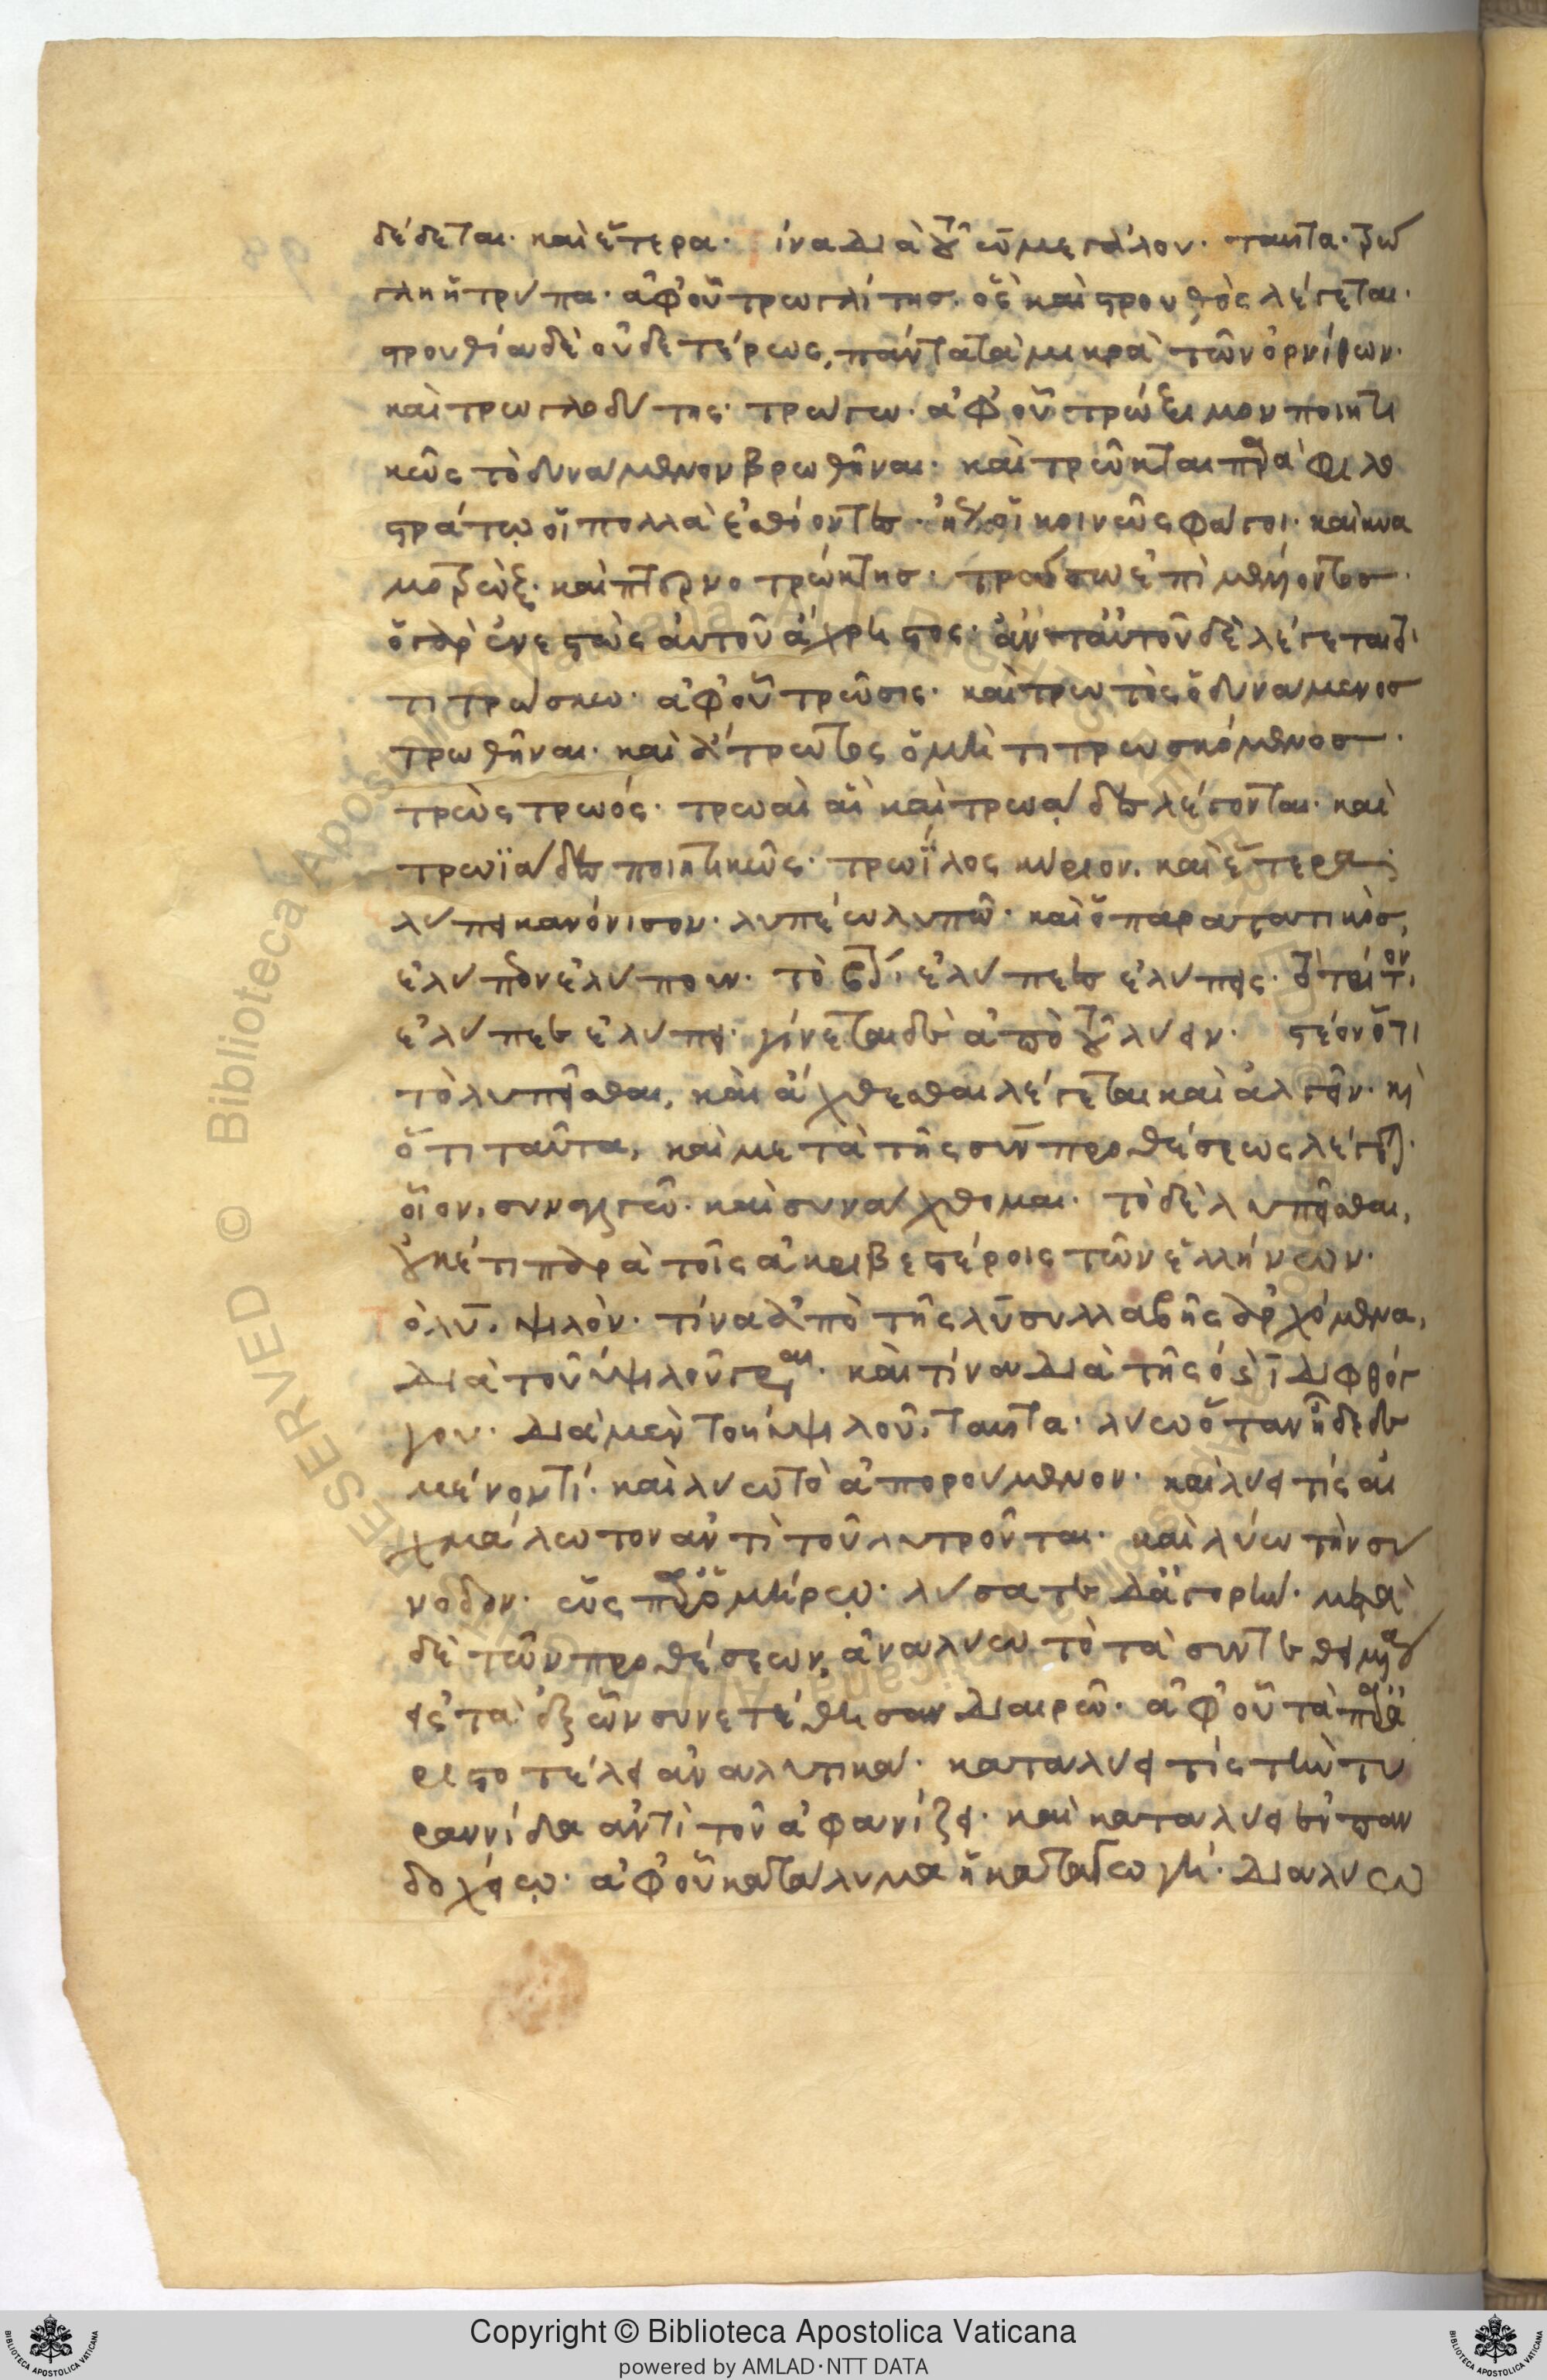 δέδεται· καὶ ἕτερα· ίνα διὰ τοῦ ω μεγάλου· ταῦτα· τρώ
γλη ἡ τρύπα· ἀφ' οὗ τρωγλίτης, ὃς καὶ στρουθὸς λέγεται·
στρουθία δὲ οὐδετέρως, πάντα τὰ μικρὰ τῶν ὀρνίθων·
καὶ τρωγλοδύτης· τρώγω· ἀφ' οὗ τρώξιμον ποιητι
κῶς τὸ δυνάμενον βρωθῆναι· καὶ τρῶκται παρὰ φιλο
στράτῳ οἱ πολλὰ ἐσθίοντες· οἱ κοινῶς φάγοι· καὶ κυα
μοτρώξ· καὶ πτερνοτρώκτης· τρώσω ἐπὶ μέλλοντος·
ὁ γὰρ ἐνεστὼς αὐτοῦ ἄχρηστος· ἀντ' αὐτοῦ δὲ λέγεται
τιτρώσκω· ἀφ' οὗ τρῶσις· καὶ τρωτὸς ὁ δυνάμενος
τρωθῆναι· καὶ ἄτρωτος ὁ μὴ τιτρωσκόμενος·
τρὼς τρωός· τρωαὶ αἳ καὶ τρωάδες λέγονται· καὶ
τρωϊάδες ποιητικῶς· τρωΐλος κύριον. καὶ ἕτερα·
λυπῶ κανόνισον· λυπέω λυπῶ· καὶ ὁ παρατατικὸς,
ἐλύπεον ἐλύπουν· τὸ β. ἐλύπεες ἐλύπεις· τὸ τρίτον
ἐλύπεε ἐλύπει· γίνεται δὲ ἀπὸ τοῦ λύειν· στέον ὅτι
τὸ λυπεῖσθαι, καὶ ἄχθεσθαι λέγεται καὶ ἀλγεῖν· καὶ
ὅτι ταῦτα, καὶ μετὰ τῆς σὺν προθέσεως λέγεται·
οἷον, συναλγῶ· καὶ συνάχθομαι· τὸ δὲ λυπεῖσθαι,
οὐκέτι παρὰ τοῖς ἀκριβεστέροις τῶν ἑλλήνων·
ὸ λῦ. ψιλὸν· τίνα ἀπὸ τῆς λῦ συλλαβῆς ἀρχόμενα,
διὰ τοῦ ὐψιλοῦ γράφεται· καὶ τίνα διὰ τῆς ο καὶ ι διφθόγ
γου· διὰ μὲν τοῦ ὐψιλοῦ, ταῦτα· λύω ὅταν ᾖ δεδε
μένον τί· καὶ λύω τὸ ἀπορούμενον· καὶ λύει τίς αἰ
χμάλωτον ἀντὶ τοῦ λυτροῦται· καὶ λύω τὴν σύ
νοδον· ὡς παρ' ὁμήρῳ· λῦσατε ἀγορήν· μετὰ
δὲ τῶν προθέσεων, ἀναλύω τὸ τὰ συντεθειμένα
εἰς τὰ ἐξ ὧν συνετέθησαν διαιρῶ· ἀφ' οὗ τὰ παρὰ ἀ
ριστοτέλει ἀναλυτικά· καταλύει τίς τὴν τυ
ραννίδα ἀντὶ τοῦ ἀφανίζει· καὶ καταλύει ἐν παν
δοχείῳ· ἀφ' οὗ κατάλυμα ἡ καταγωγή· διαλύω
Copyright © Biblioteca Apostolica Vaticana
powered by AMLAD·NTT DATA